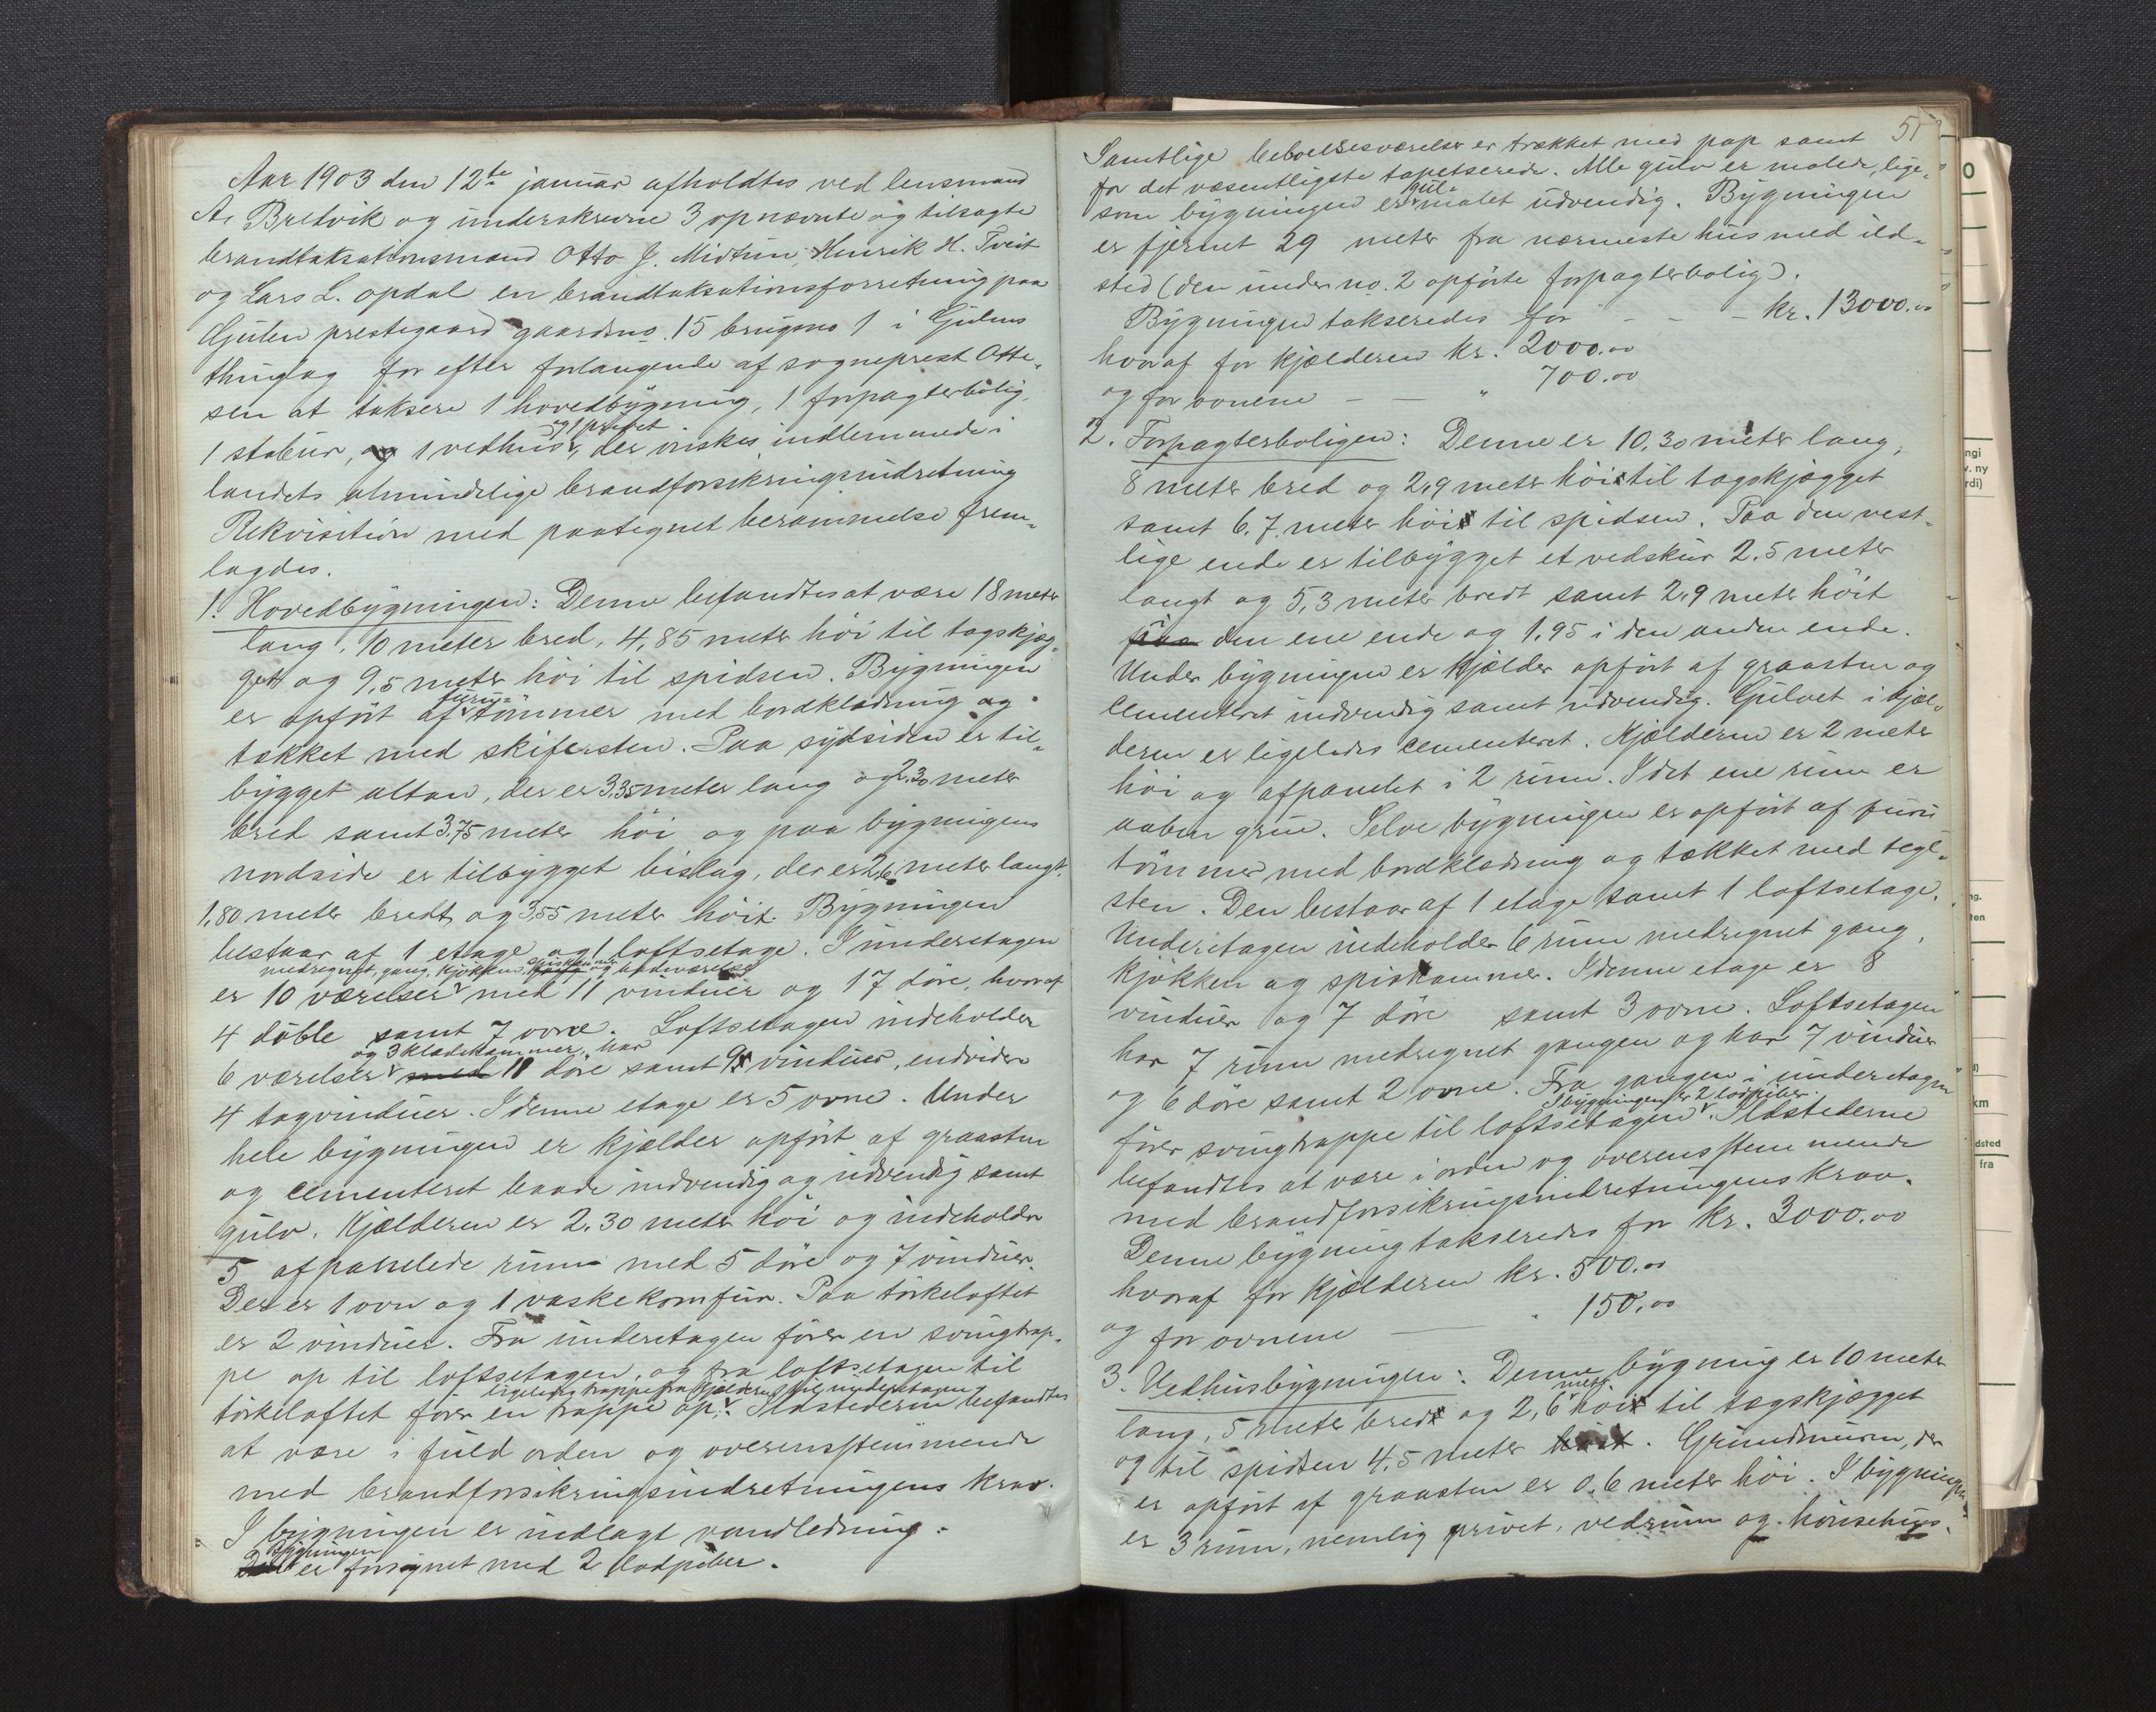 Aar 1903 den 12te januar afholdtes ved lensmand
A. Bredvik og underskrevne 3 opnævnte og tilsagte
brandtaksationsmænd Otto J. Midtun, Henrik H. Tveit
og Lars L. Opdal en brandtaksationsforretning paa
Gulen prestegaard gaardsno. 15 brugsno 1 i Gulens
thinglag for efter forlangende af sogneprest Otte-
sen at taksere 1 hovedbygning, 1 forpagterbolig,
og 1 privet
1 stabur, og 1 vedhus, der ønskes indlemmede i
landets almindelige brandforsikringsindretning
Rekvisition med paategnet berammelse frem-
lagdes.
1. Hovedbygningen: Denne befandtes at være 18 meter
lang, 10 meter bred, 4,85 meter høi til tagskjæg-
get og 9,5 meter høi til spidsen. Bygningen
furu-
er opført af tømmer med bordklædning og
tækket med skifersten. Paa sydsiden er til-
bygget altan, der er 3,35 meter lang og 2,30 meter
bred samt 3,75 meter høi og paa bygningens
nordside er tilbygget bislag, der er 2,6 meter langt,
1,80 meter bredt og 3,55 meter høit. Bygningen
bestaar af 1 etage og 1 loftsetage. I underetagen
medregnet, gang, kjøkken, spiskammer og badeværelse
er 10 værelser med 11 vinduer og 17 døre, hvoraf
4 doble samt 7 ovne. Loftsetagen indeholder
og 3 klædekammer, har
6 værelser med 11 døre samt 9 vinduer, endvidere
4 tagvinduer. I denne etage er 5 ovne. Under
hele bygningen er kjælder opført af graasten
og cementeret baade indvendig og udvendig samt
gulv. Kjælderen er 2,30 meter høi og indeholder
5 afpanelede rum med 5 døre og 7 vinduer.
Der er 1 ovn og 1 vaskekomfur. Paa tørkeloftet
er 2 vinduer. Fra underetagen fører en svingtrap-
pe op til loftsetagen, og fra loftsetagen til
ligeledes trappe fra kjælderen til underetagen
tørkeloftet fører en trappe op. Ildstederne befandtes
at være i fuld orden og overensstemmende
med brandforsikringsindretningens krav.
I bygningen er indlagt vandledning.
Bygningen
er forsynet med 2 lodpiber.
51
Samtlige beboelsesværelser er trækket med pap samt
for det væsentligste tapetserede. Alle gulv er malede, lige-
gul-
som bygningen er malet udvendig. Bygningen
er fjernet 29 meter fra nærmeste hus med ild-
sted (den under no. 2 opførte forpagterbolig).
Bygningen takseredes for - - - kr. 13000.00
hvoraf for kjælderen kr. 2000.00
og for ovnene - - " 700.00
2. Forpagterboligen: Denne er 10,30 meter lang,
8 meter bred og 2,9 meter høi til tagskjægget
samt 6,7 meter høi til spidsen. Paa den vest-
lige ende er tilbygget et vedskur 2,5 meter
langt og 5,3 meter bredt samt 2,9 meter høit
paa den ene ende og 1,95 i den anden ende.
Under bygningen er kjælder opført af graasten og
cementeret indvendig samt udvendig. Gulvet i kjæl-
deren er ligeledes cementeret. Kjælderen er 2 meter
høi og afpanelet i 2 rum. I det ene rum er
aaben grue. Selve bygningen er opført af furu
tømmer med bordklædning og tækket med tegl-
sten. Den bestaar af 1 etage samt 1 loftsetage.
Underetagen indeholder 6 rum medregnet gang,
kjøkken og spiskammer. I denne etage er 8
vinduer og 7 døre samt 3 ovne. Loftsetagen
har 7 rum medregnet gangen og har 7 vinduer
og 6 døre samt 2 ovne. Fra gangen i underetagen
I bygningen er 2 lodpiber.
fører svingtrappe til loftsetagen. Ildstederne
befandtes at være i orden og overensstemmende
med brandforsikringsindretningens krav.
Denne bygning takseredes for kr. 3000.00
hvoraf for kjælderen kr. 500.00
og for ovnene — " 150.00
3. Vedhusbygningen: Denne bygning er 10 meter
meter
lang, 5 meter bred og 2,6 høi til tagskjægget
og til spidsen 4,5 meter. Grundmuren, der
er opført af graasten er 0,6 meter høi. I bygningen
er 3 rum, nemlig privet, vedrum og hønsehus.